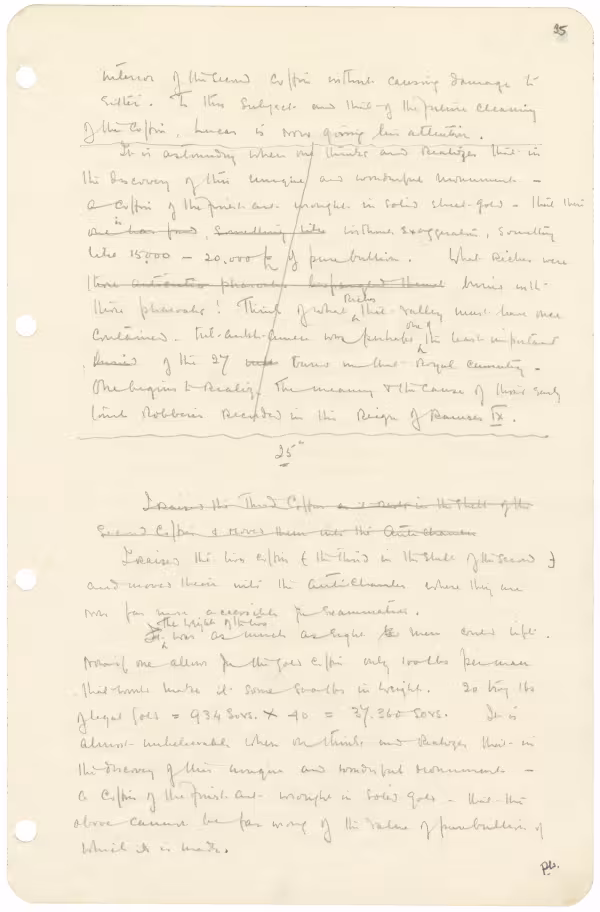 25
interior of the second coffin without causing damage to
either. To this subject and that of the future cleaning
of the coffin, Lucas is now giving his attention.
It is astounding when one thinks and realizes that in
the discovery of this unique and wonderful monument –
a coffin of the finest art wrought in solid sheet-gold – that
is without exaggeration, something
like 15,000 – 20,000 of pure bullion. What Riches were
those buried with
those pharaohs! Think of what Riches that valley must have once
contained. Tut-ankh-Amen was perhaps one of the least important
of the 27 buried in that Royal cemetery –
One begins to realize the meaning & the cause of those early
tomb Robberies Recorded in the Reign of Ramses IX.
25
I raised the Third Coffin as it rests in the shell of the
Second Coffin & moved them into the Antechamber
I raised the two coffins ( the third in the shell of the second )
and moved them into the Antechamber where they are
now far more accessible for examination.
The weight of the two
was as much as eight men could lift.
Now if one allows for the gold coffin only 100 lbs per man
that would make it some 800 lbs in weight. 20 troy lbs
of legal Gold = 934 Sovs. × 40 = 37.360 Sovs. It is
almost unbelievable when one thinks and realizes that in
the discovery of this unique and wonderful monument –
a coffin of the finest art wrought in solid gold – that the
above cannot be far wrong of the value of pure bullion of
which it is made.